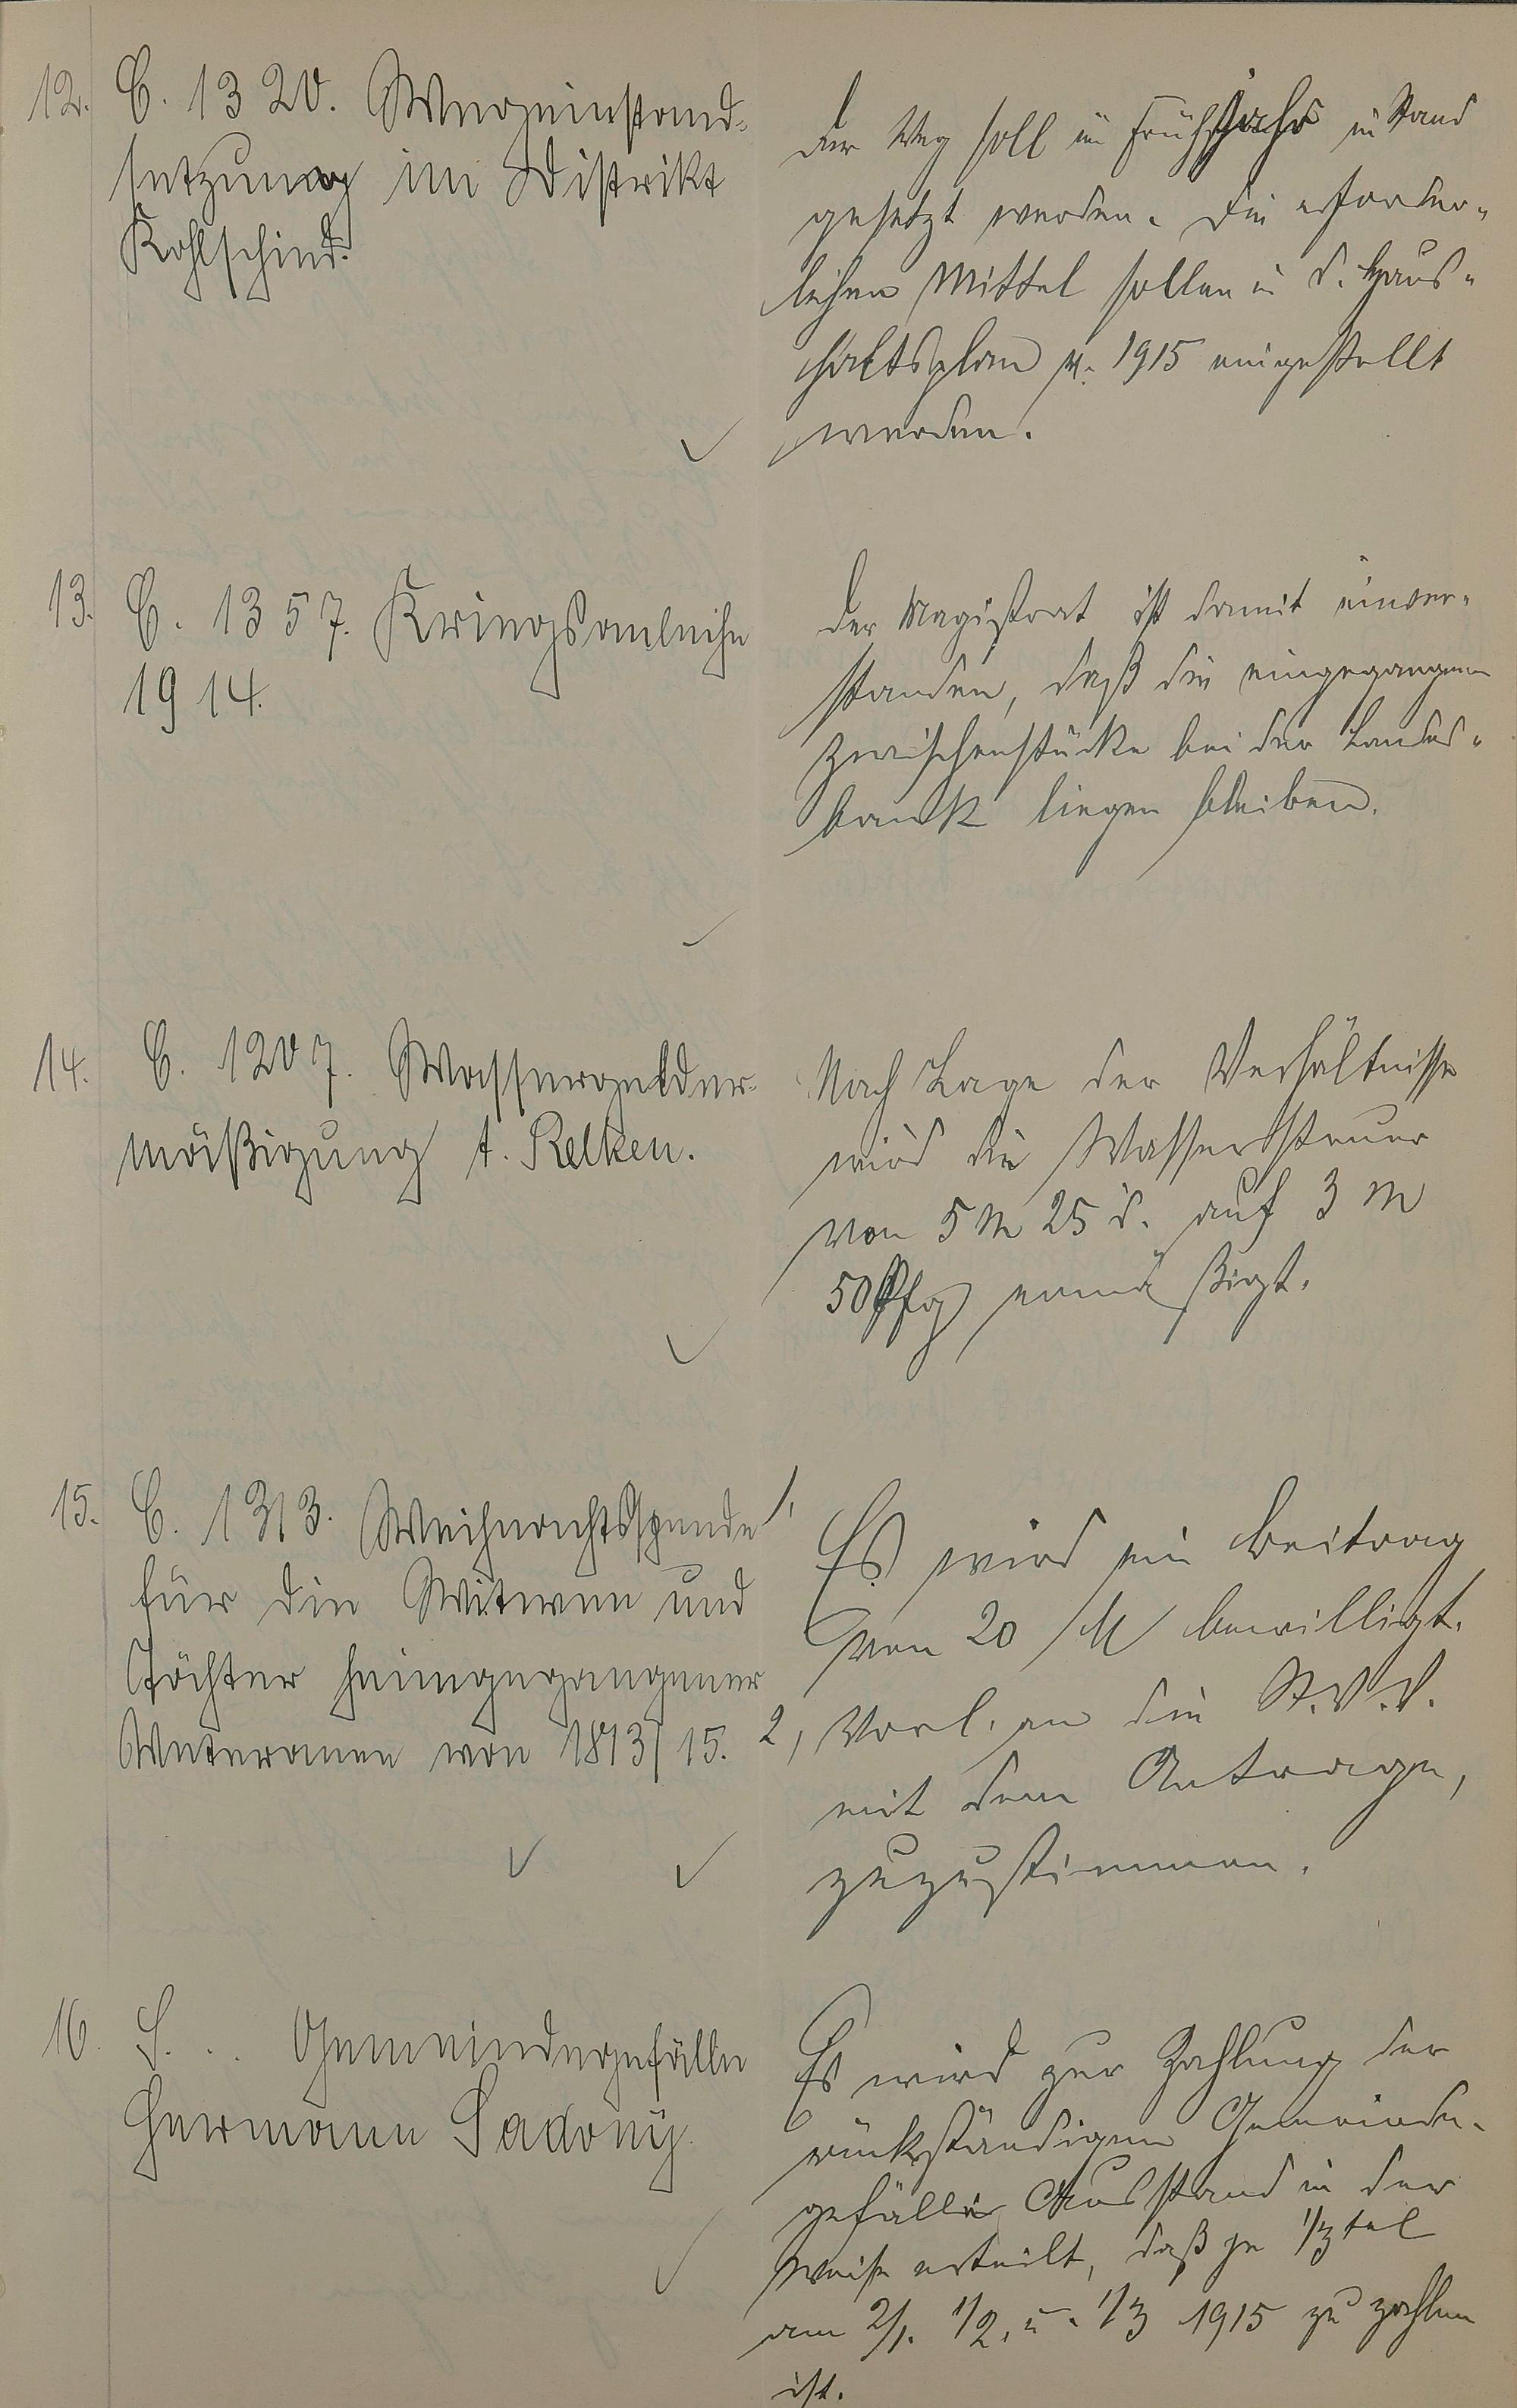 12. C. 1320. Wegeinstand-
setzung im Distrikt
Kohlschind.
Der Weg soll im Frühjahr in Stand
gesetzt werden. Die erforder-
lichen Mittel sollen in d. Haus-
haltsplan p. 1915 eingestellt
werden.
13. C. 1357. Kriegsanleihe
1914.
Der Magistrat ist damit einver-
standen, daß die eingegangenen
Zwischenstücke bei der Landes-
bank liegen bleiben.
14. C. 1207. Wassergelder-
mäßigung t. Relken.
Nach Lage der Verhältnisse
wird die Wassersteuer
von 5 M 25 d. auf 3 M
50 Pfg ermäßigt.
15. C. 1313. Weihnachtsspende
für die Witwen und
Töchter heimgegangener
Veteranen von 1813/15.
1, Es wird ein Beitrag
von 20 M bewilligt.
2, Vorl. an die St.V.V.
mit dem Antrage,
zuzustimmen.
16. S. . . Gemeindegefälle
Hermann Sadony.
Es wird zur Zahlung der
rückständigen Gemeinde-
gefälle Ausstand in der
Weise erteilt, daß je 1/3tel
am 2/1. 1/2. u. 1/3 1915 zu zahlen
ist.